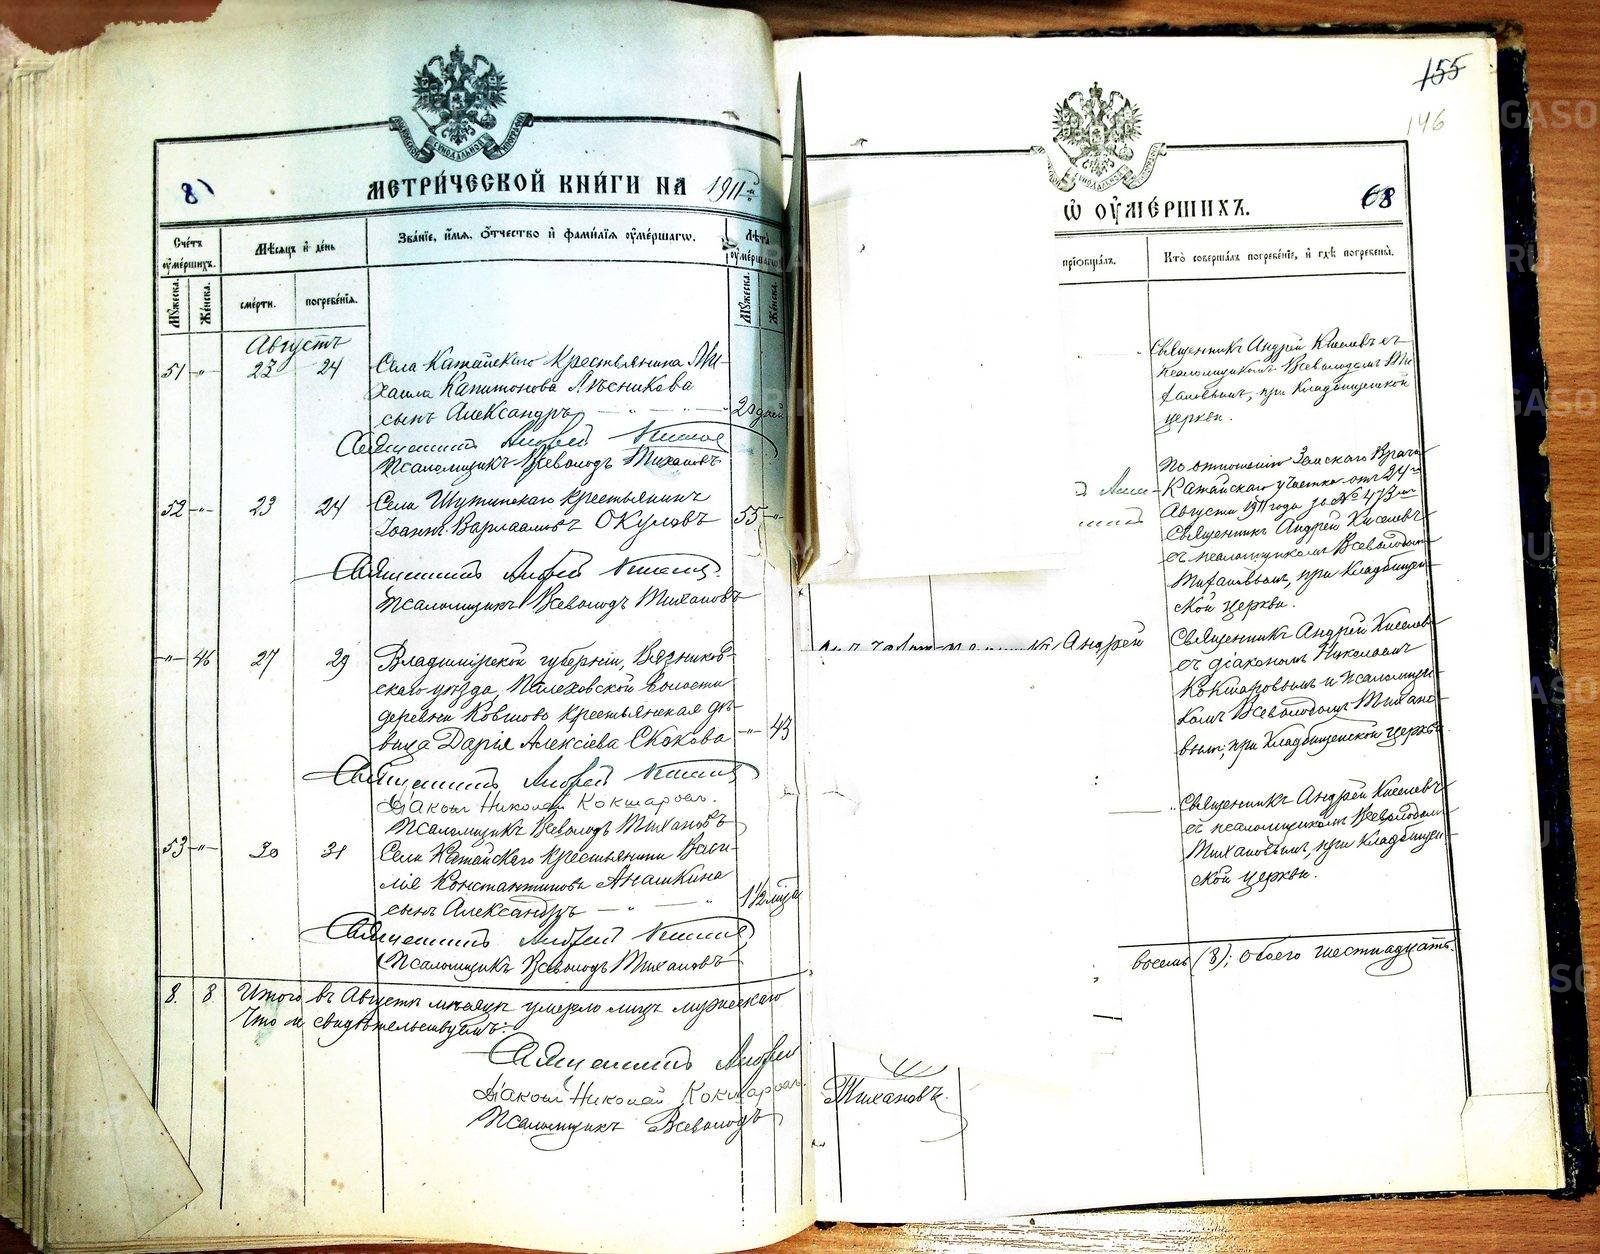 8)
МЕТРИ́ЧЕСКОЙ КНИ́ГИ НА 1911 й
Сче́тъ ᲂу҆ме́ршихъ.
Мѣ́сѧцъ и҆ де́нь
Зва́нїе, и҆́мѧ, ѻ҆́тчество и҆ фами́лїѧ ᲂу҆ме́ршагѡ.
Лѣ́та ᲂу҆ме́ршагѡ
Мꙋ́жеска.
Же́нска.
сме́рти.
погребе́нїѧ.
Мꙋ́жеска.
Же́нска.
Августъ
51 -"- 23 24 Села Катайскаго крестьянина Ми-
хаила Капитонова Лѣсникова
сынъ Александръ — " — " — 20 дней
Священникъ Андрей Киселев
Псаломщикъ Всеволодъ Тихановъ
52 -"- 23 24 Села Шутинскаго крестьянинъ
Іоаннъ Варлаамовъ Окуловъ 55 -"-
Священникъ Андрей Киселев
Псаломщикъ Всеволодъ Тихановъ
-"- 46 27 29 Владимірской губерніи, Вязников-
скаго уѣзда, Палеховской волости
деревни Ковшово крестьянская дѣ-
вица Дарія Алексіева Скокова -"- 43
Священникъ Андрей Киселев
Діаконъ Николай Кокшаров.
Псаломщикъ Всеволодъ Тихановъ
53 -"- 30 31 Села Катайскаго крестьянина Васи-
лія Константинова Анашкина
сынъ Александръ — " — " 1 1/2 мѣся
Священникъ Андрей Киселев
Псаломщикъ Всеволодъ Тихановъ
8. 8 Итого въ Августѣ мѣсяцѣ умерло лицъ мужескаго
Что и свидѣтельствуемъ:
Священникъ Андрей
Діаконъ Николай Кокшаров.
Псаломщикъ Всеволодъ
155
146
Ѡ ᲂУ҆МЕ́РШИХЪ.
68
прїѡбща́лъ.
Кто̀ соверша́лъ погребе́нїе, и҆ гдѣ̀ погребены̀.
Священникъ Андрей Киселевъ съ
псаломщикомъ Всеволодомъ Ти-
хановымъ, при кладбищенской
церкви.
По отношенію Земскаго Врача
Катайскаго участка отъ 24 го
Августа 1911 года за № 473 мъ
Священникъ Андрей Киселевъ
съ псаломщикомъ Всеволодомъ
Тихановымъ, при кладбищен-
ской церкви.
Андрей
Священникъ Андрей Киселевъ
съ діакономъ Николаемъ
Кокшаровымъ и псаломщи-
комъ Всеволодомъ Тихано-
вымъ, при кладбищенской церкви.
Священникъ Андрей Киселевъ
съ псаломщикомъ Всеволодомъ
Тихановымъ, при кладбищен-
ской церкви.
восемь (8); обоего шестнадцать.
Тихановъ.